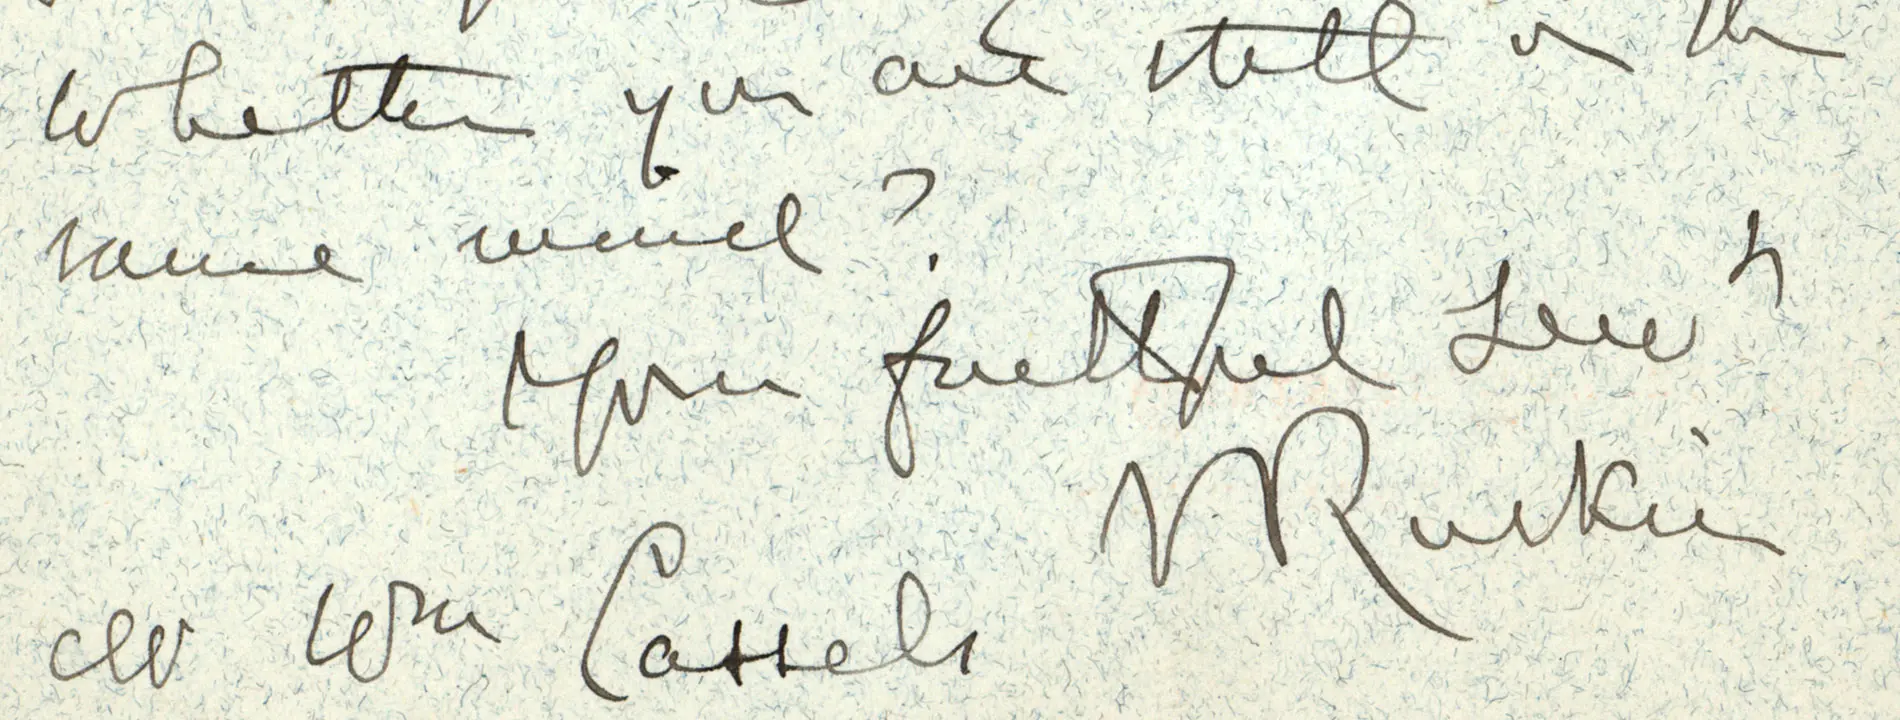 whether you are still in the
same mind?
Your faithful Serv^t
J Ruskin
Wm Cassels